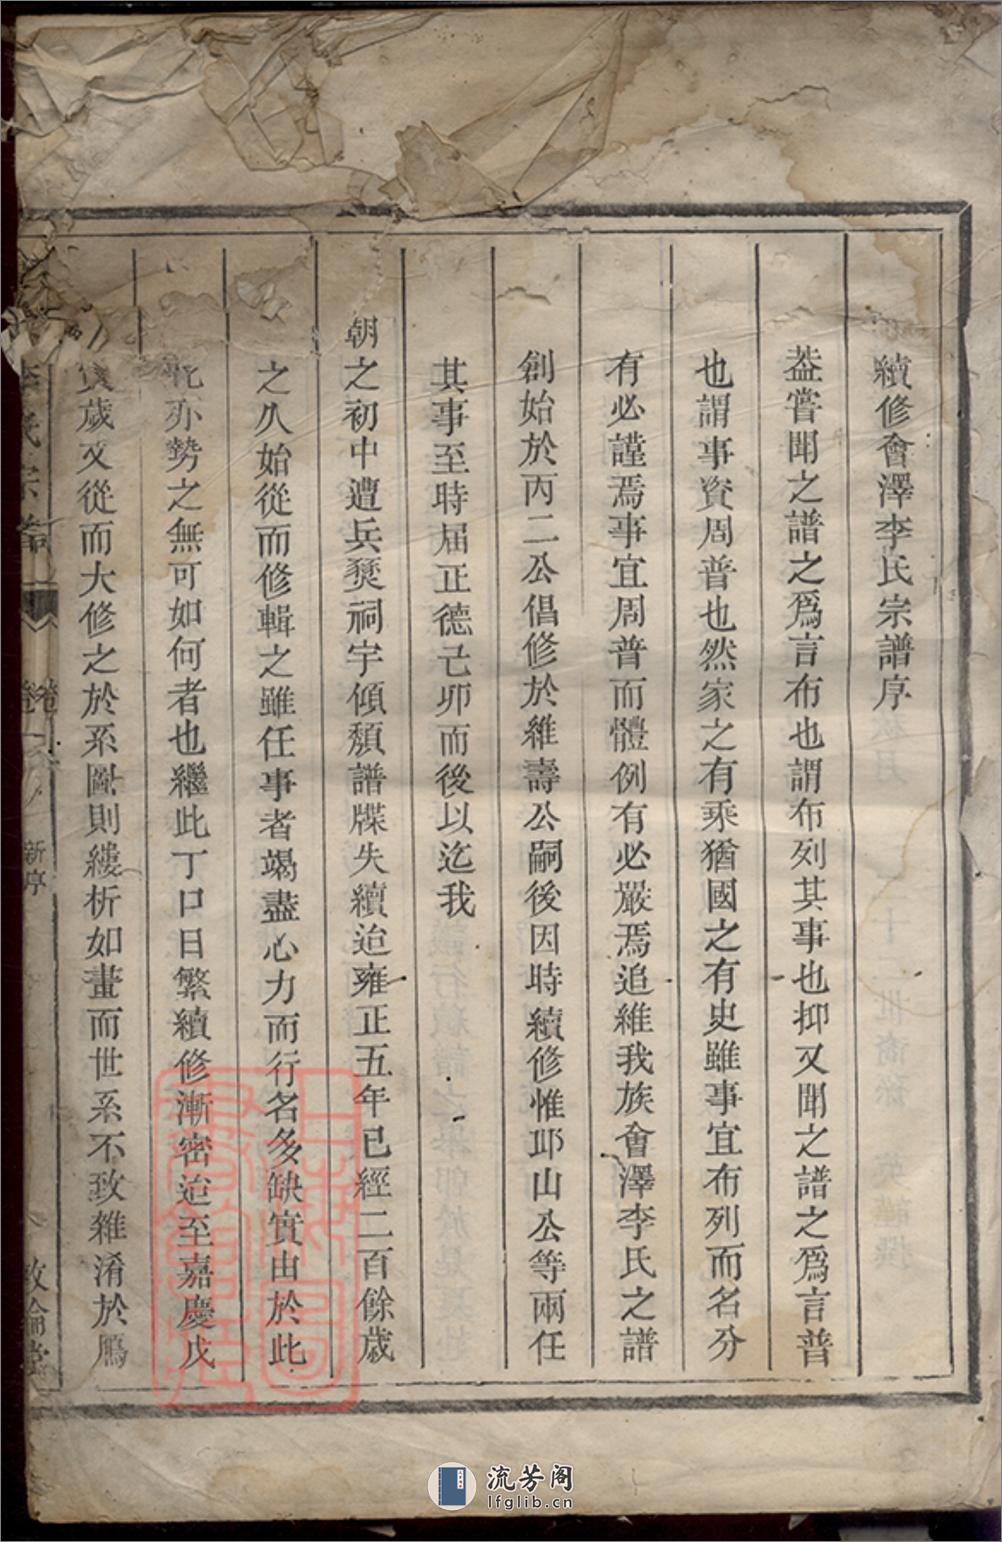 續修會澤李氏宗譜序
葢嘗聞之譜之爲言布也謂布列其事也抑又聞之譜之爲言普
也謂事資周普也然家之有乘猶國之有史雖事宜布列而名分
有必謹焉事宜周普而體例有必嚴焉追維我族會澤李氏之譜
創始於丙二公倡修於維壽公嗣後因時續修惟邛山公等兩任
其事至時届正德己卯而後以迄我
朝之初中遭兵燹祠宇傾頽譜牒失續迨雍正五年已經二百餘歲
之久始從而修輯之雖任事者竭盡心力而行名多缺實由於此
此亦勢之無可如何者也繼此丁口日繁續修漸密迨至嘉慶戊
寅歲又從而大修之於系圖則縷析如畫而世系不致雜淆於鴈
李氏宗譜
卷一
新序
敦倫堂
流芳阁
lfglib.cn